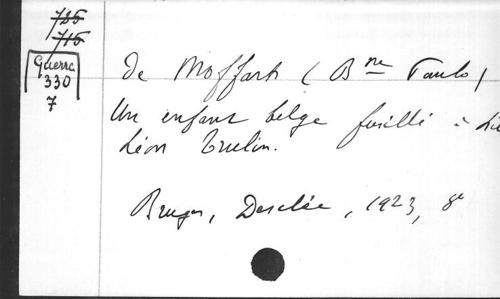 725
715
Guerre
330
7
de Moffarts (Bne Paul)
Un enfant belge fusillé à
Léon Trulin.
Bruges, Desclée, 1923, 8°